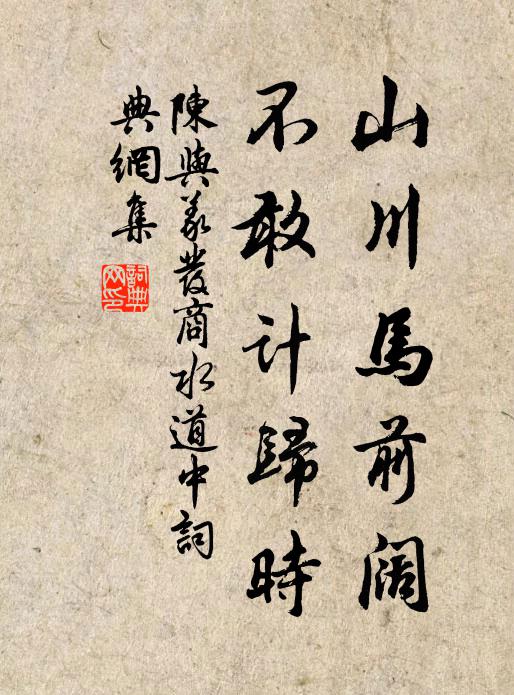 山川馬前闊
不敢計歸時
陳與義發商水道中詞
典網集
詞典
网印